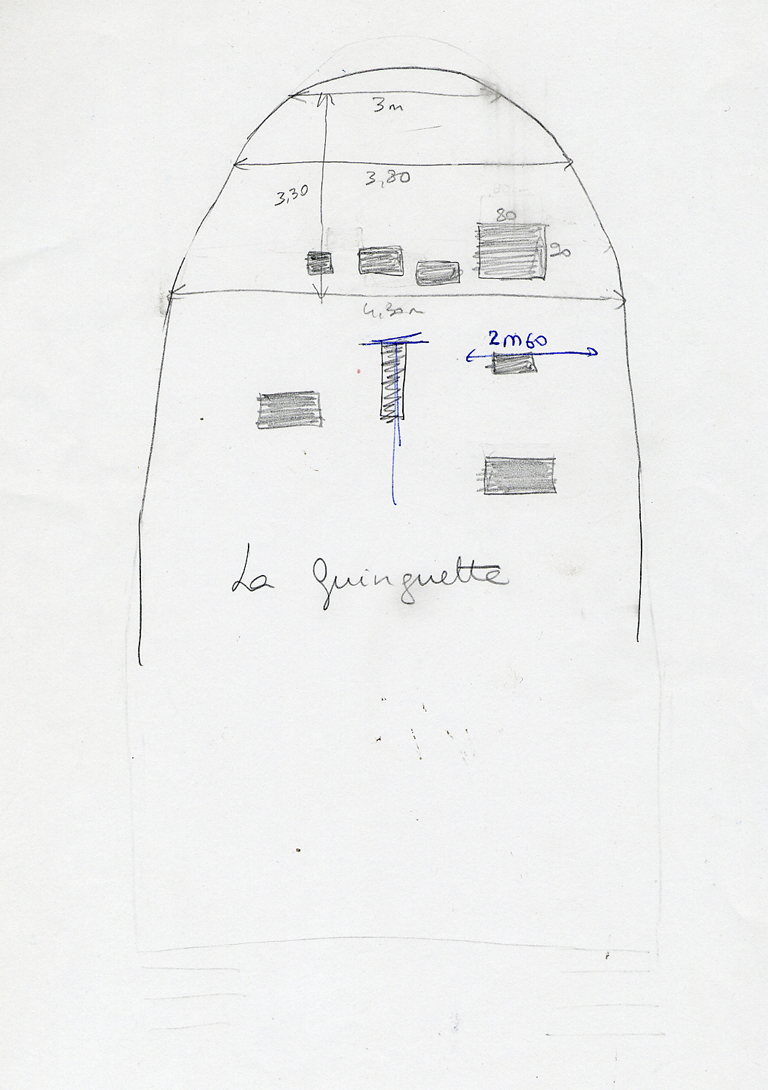 3m
3,80
3,30
80
90
4,30m
2m60
La Guinguette